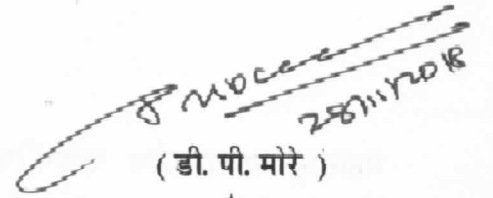 28/11/2018
( डी. पी. मोरे )